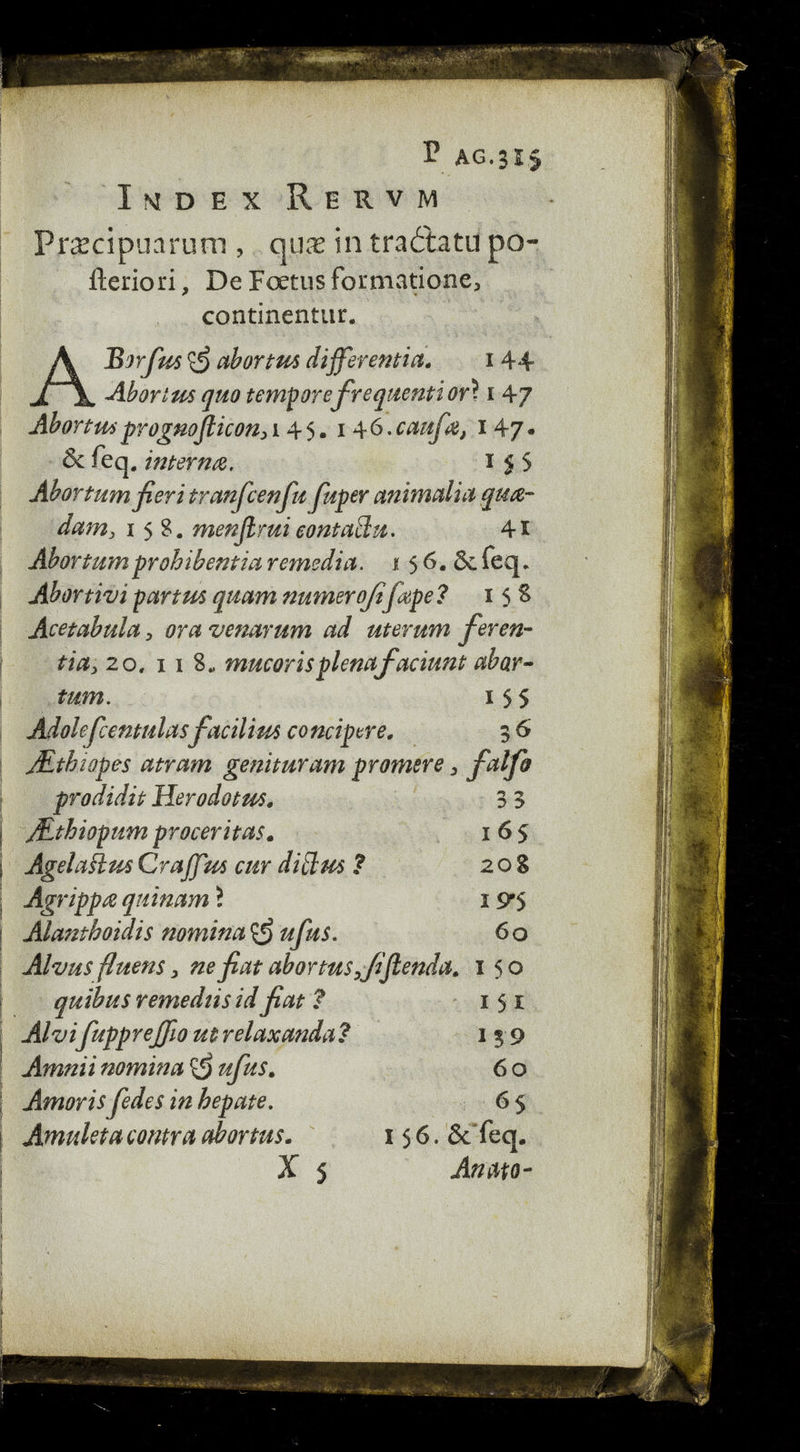 PAG.315
INDEX RERVM
Præcipuarum, quæ in tractatu po-
ſteriori, De Fœtus formatione,
continentur.
ABorſus & abortus differentia. 144
Abortus quo tempore frequentior? 147
Abortus prognoſticon, 145. 146. cauſæ, 147.
& ſeq. internæ. 155
Abortum fieri tranſcenſu ſuper animalia quæ-
dam, 158. menſtrui contactu. 41
Abortum prohibentia remedia. 156. & ſeq.
Abortivi partus quam numeroſi ſæpe? 158
Acetabula, ora venarum ad uterum feren-
tia, 20. 118. mucoris plena faciunt abor-
tum. 155
Adoleſcentulas facilius concipere. 36
Æthiopes atram genituram promere, falſo
prodidit Herodotus. 33
Æthiopum proceritas. 165
Agelaſtus Craſſus cur dictus? 208
Agrippæ quinam? 195
Alanthoidis nomina & uſus. 60
Alvus fluens, ne fiat abortus, ſiſtenda. 150
quibus remediis id fiat? 151
Alvi ſuppreſſio ut relaxanda? 139
Amnii nomina & uſus. 60
Amoris ſedes in hepate. 65
Amuleta contra abortus. 156. & ſeq.
X 5 Anato-